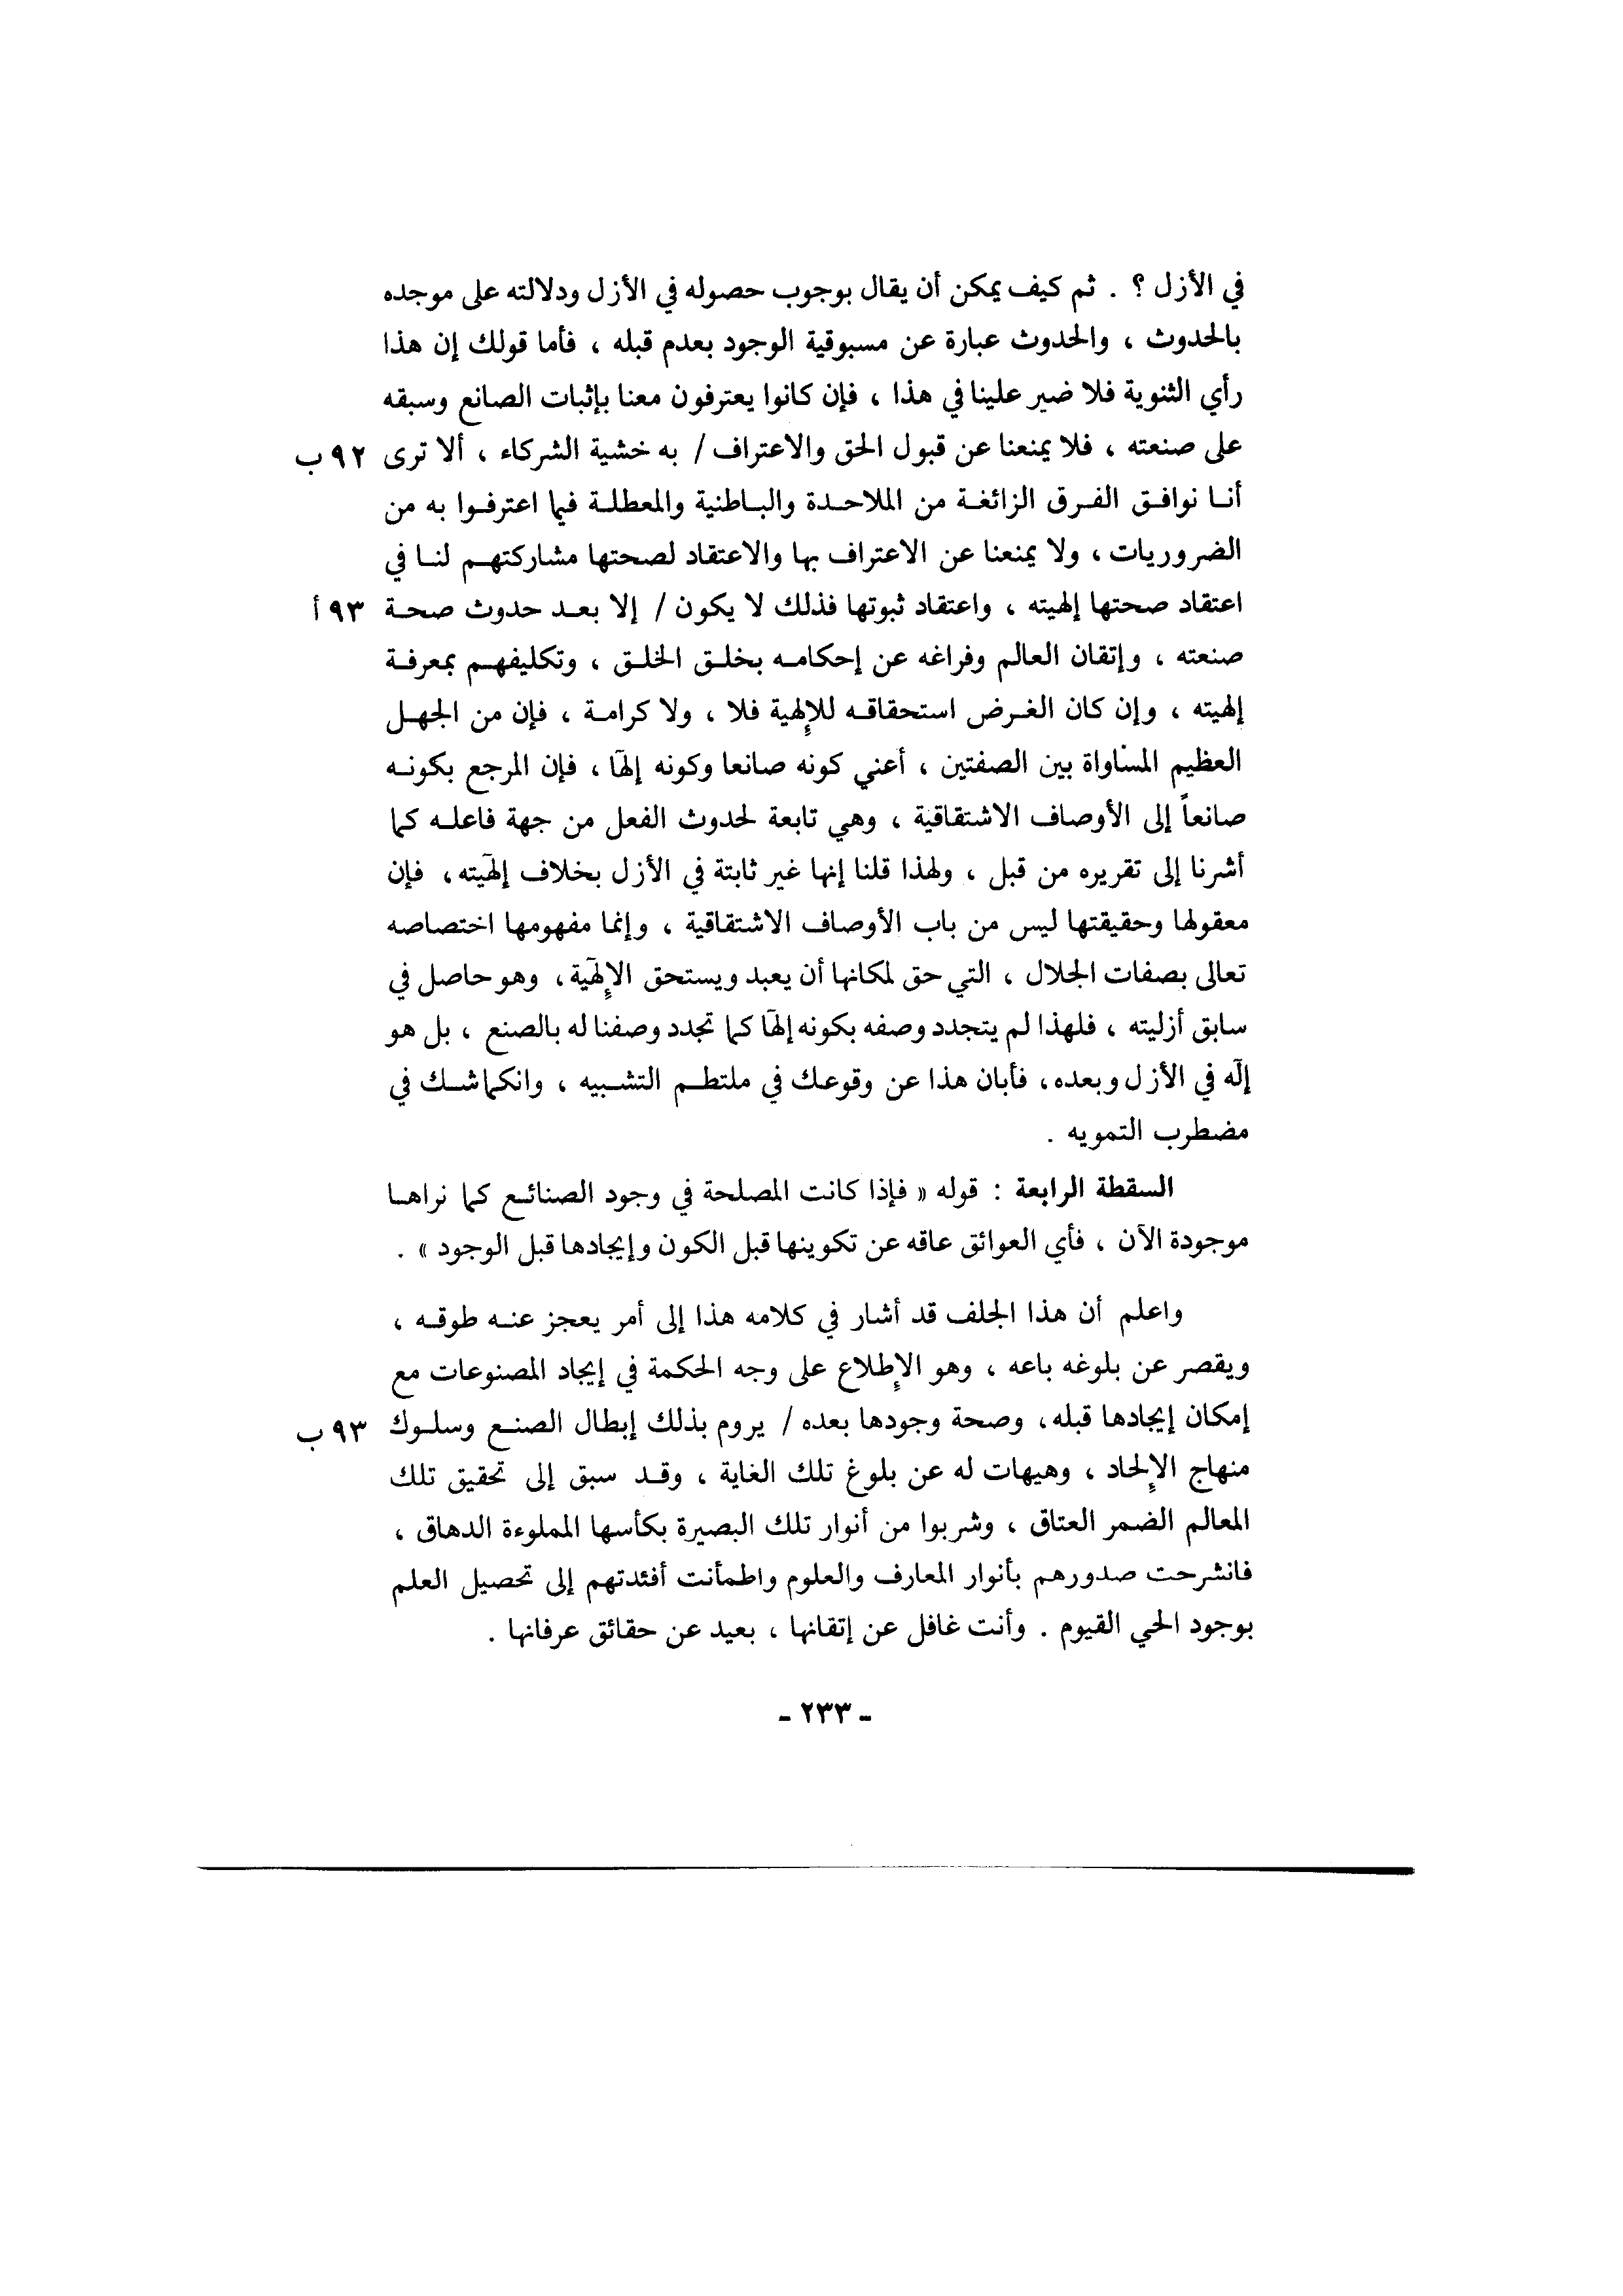 في الأزل ؟ . ثم كيف يمكن أن يقال بوجوب حصوله في الأزل ودلالته على موجده
بالحدوث ، والحدوث عبارة عن مسبوقية الوجود بعدم قبله ، فأما قولك إن هذا
رأي الثنوية فلا ضير علينا في هذا ، فإن كانوا يعترفون معنا بإثبات الصانع وسبقه
على صنعته ، فلا يمنعنا عن قبول الحق والاعتراف / به خشية الشركاء ، ألا ترى ٩٢ ب
أنا نوافق الفرق الزائغة من الملاحدة والباطنية والمعطلة فيما اعترفوا به من
الضروريات ، ولا يمنعنا عن الاعتراف بها والاعتقاد لصحتها مشاركتهم لنا في
اعتقاد صحتها إلهيته ، واعتقاد ثبوتها فذلك لا يكون / إلا بعد حدوث صحة ٩٣ أ
صنعته ، وإتقان العالم وفراغه عن إحكامه بخلق الخلق ، وتكليفهم بمعرفة
إلهيته ، وإن كان الغرض استحقاقه للإلهية فلا ، ولا كرامة ، فإن من الجهل
العظيم المساواة بين الصفتين ، أعني كونه صانعا وكونه إلهآ ، فإن المرجع بكونه
صانعاً إلى الأوصاف الاشتقاقية ، وهي تابعة لحدوث الفعل من جهة فاعله كما
أشرنا إلى تقريره من قبل ، ولهذا قلنا إنها غير ثابتة في الأزل بخلاف إلهيته ، فإن
معقولها وحقيقتها ليس من باب الأوصاف الاشتقاقية ، وإنما مفهومها اختصاصه
تعالى بصفات الجلال ، التي حق لمكانها أن يعبد ويستحق الإلهية ، وهو حاصل في
سابق أزليته ، فلهذا لم يتجدد وصفه بكونه إلهآ كما تجدد وصفنا له بالصنع ، بل هو
إله في الأزل وبعده ، فأبان هذا عن وقوعك في ملتطم التشبيه ، وانكماشك في
مضطرب التمويه .
السقطة الرابعة : قوله « فإذا كانت المصلحة في وجود الصنائع كما نراها
موجودة الآن ، فأي العوائق عاقه عن تكوينها قبل الكون وإيجادها قبل الوجود » .
واعلم أن هذا الجلف قد أشار في كلامه هذا إلى أمر يعجز عنه طوقه ،
ويقصر عن بلوغه باعه ، وهو الإطلاع على وجه الحكمة في إيجاد المصنوعات مع
إمكان إيجادها قبله ، وصحة وجودها بعده / يروم بذلك إبطال الصنع وسلوك ٩٣ ب
منهاج الإلحاد ، وهيهات له عن بلوغ تلك الغاية ، وقد سبق إلى تحقيق تلك
المعالم الضمر العتاق ، وشربوا من أنوار تلك البصيرة بكأسها المملوءة الدهاق ،
فانشرحت صدورهم بأنوار المعارف والعلوم واطمأنت أفئدتهم إلى تحصيل العلم
بوجود الحي القيوم . وأنت غافل عن إتقانها ، بعيد عن حقائق عرفانها .
- ٢٣٣ -